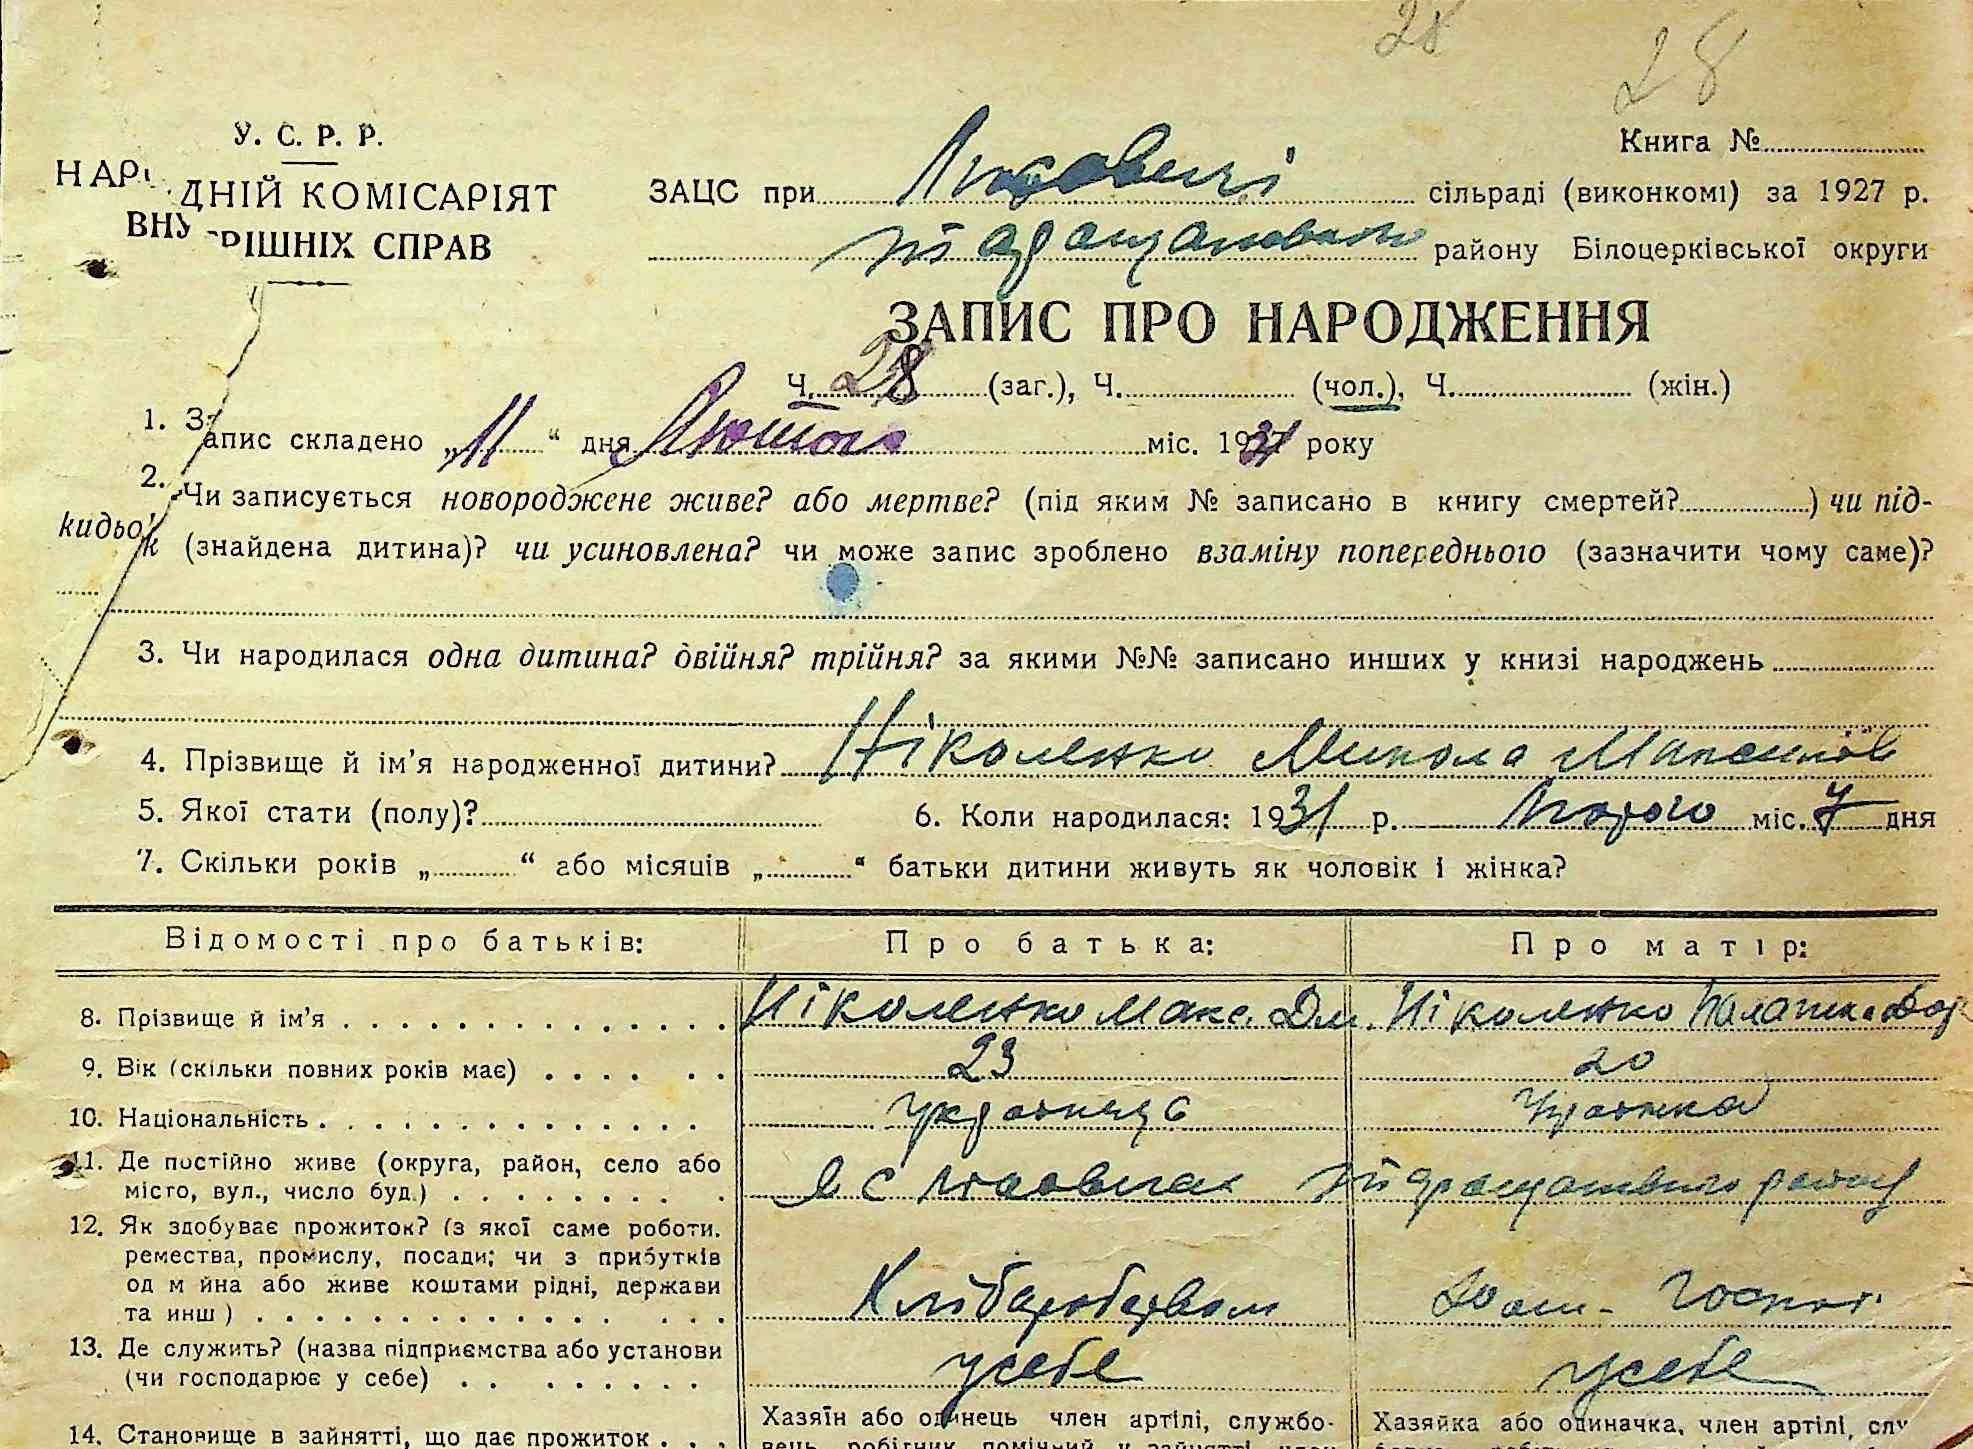 28
28
У. С. Р. Р.
НАРОДНІЙ КОМІСАРІЯТ
ВНУТРІШНІХ СПРАВ
Книга №
ЗАЦС при сільраді (виконкомі) за 1927 р.
району Білоцерківської округи
ЗАПИС ПРО НАРОДЖЕННЯ
Ч. 28 (заг.), Ч. (чол.), Ч. (жін.)
1. Запис складено „11“ дня Лютого міс. 1931 року
2. Чи записується новороджене живе? або мертве? (під яким № записано в книгу смертей? ) чи під-
кидьок (знайдена дитина)? чи усиновлена? чи може запис зроблено взаміну попереднього (зазначити чому саме)?
3. Чи народилася одна дитина? двійня? трійня? за якими №№ записано инших у книзі народжень
4. Прізвище й ім’я народженної дитини? Ніколенко Микола Максимов
5. Якої стати (полу)? 6. Коли народилася: 1931 р. Лютого міс. 7 дня
7. Скільки років „ “ або місяців „ “ батьки дитини живуть як чоловік і жінка?
Відомості про батьків: Про батька: Про матір:
8. Прізвище й ім’я Ніколенко Макс. Дм. Ніколенко
9. Вік (скільки повних років має) 23 20
10. Національність українець Українка
11. Де постійно живе (округа, район, село або
місто, вул., число буд.) в с району
12. Як здобуває прожиток? (з якої саме роботи.
ремества, промислу, посади; чи з прибутків
од м йна або живе коштами рідні, держави
та инш) Хліборобством дом. господ.
13. Де служить? (назва підприємства або установи
(чи господарює у себе) у себе у себе
14. Становище в зайнятті, що дає прожиток
Хазяїн або одинець член артілі, службо-
вець, робітник, помічний у зайнятті, член
Хазяйка або одиначка, член артілі, слу